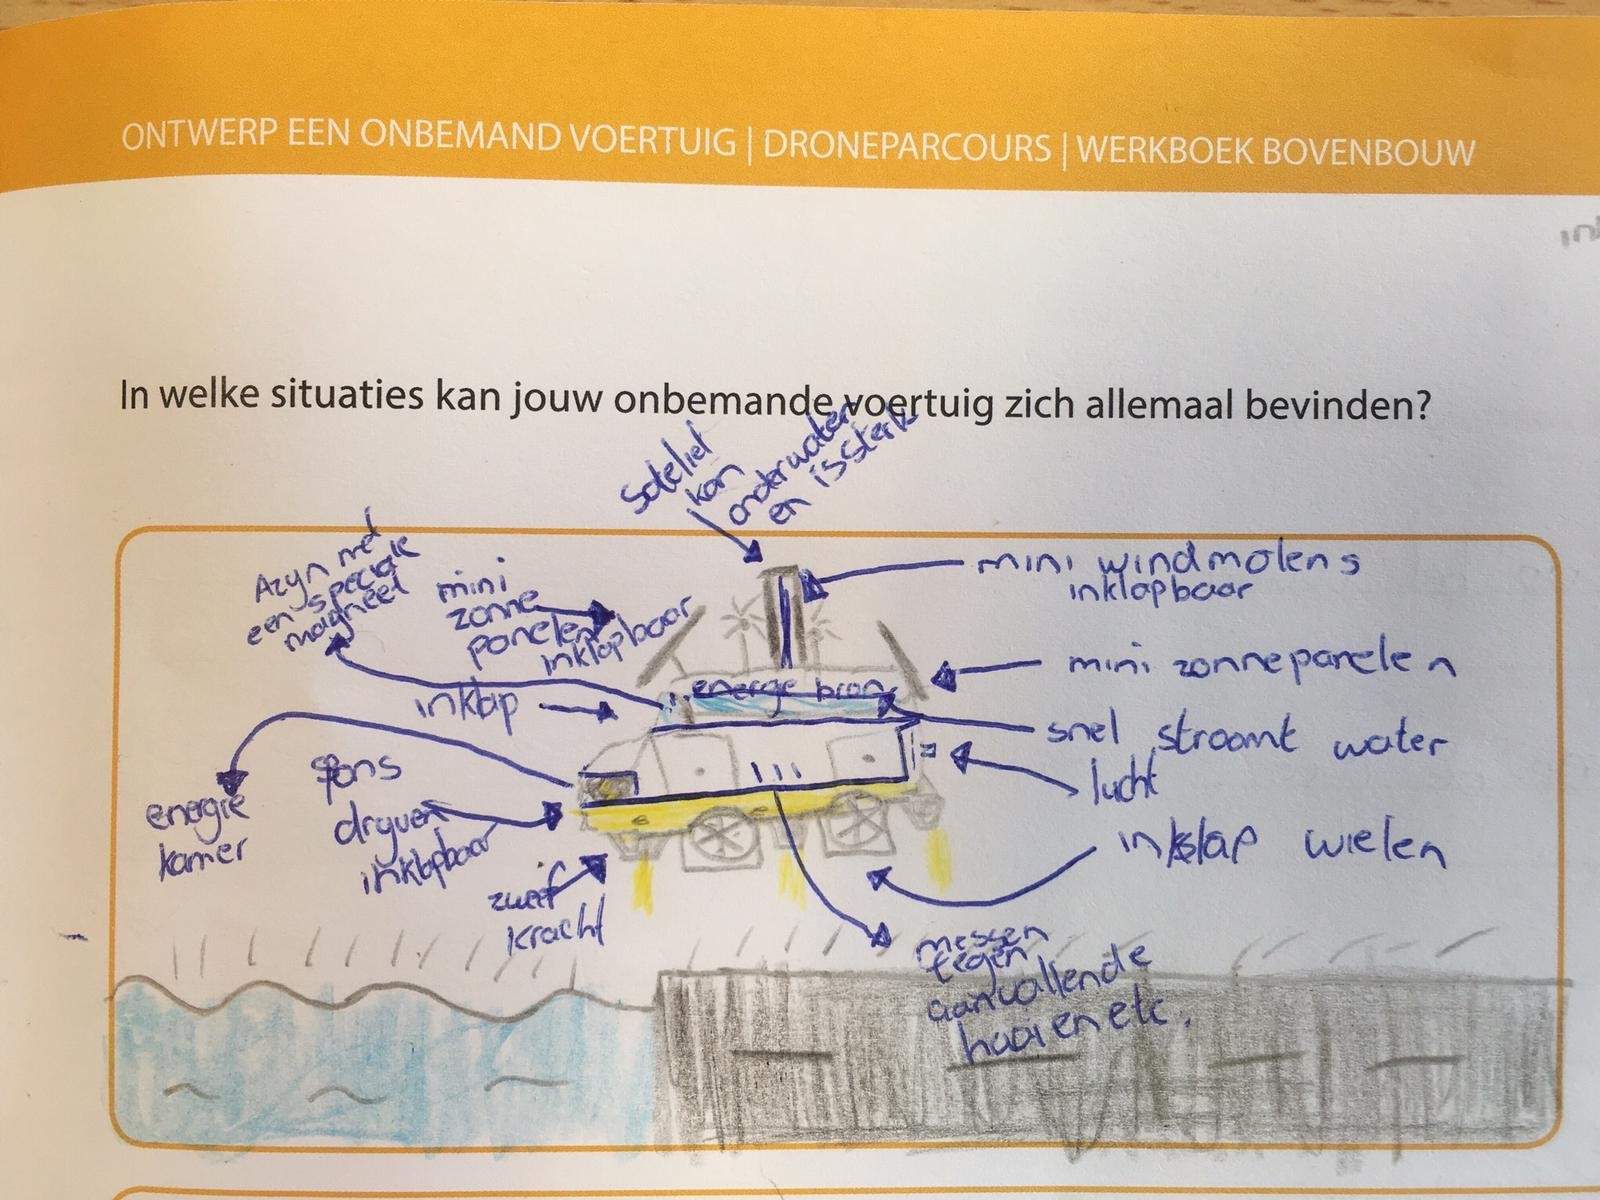 ONTWERP EEN ONBEMAND VOERTUIG | DRONEPARCOURS | WERKBOEK BOVENBOUW
In welke situaties kan jouw onbemande voertuig zich allemaal bevinden?
Sateliet
kan
onderwater
en is sterk
Azyn met
een speciale
magneet
mini
zonne
panelen
inklapbaar
mini windmolens
inklapbaar
mini zonnepanelen
energe bron
inklap
snel stroomt water
lucht
energie
kamer
spons
dryven
inklapbaar
inklap wielen
zweef
kracht
messen
tegen
aanvallende
haaien etc.